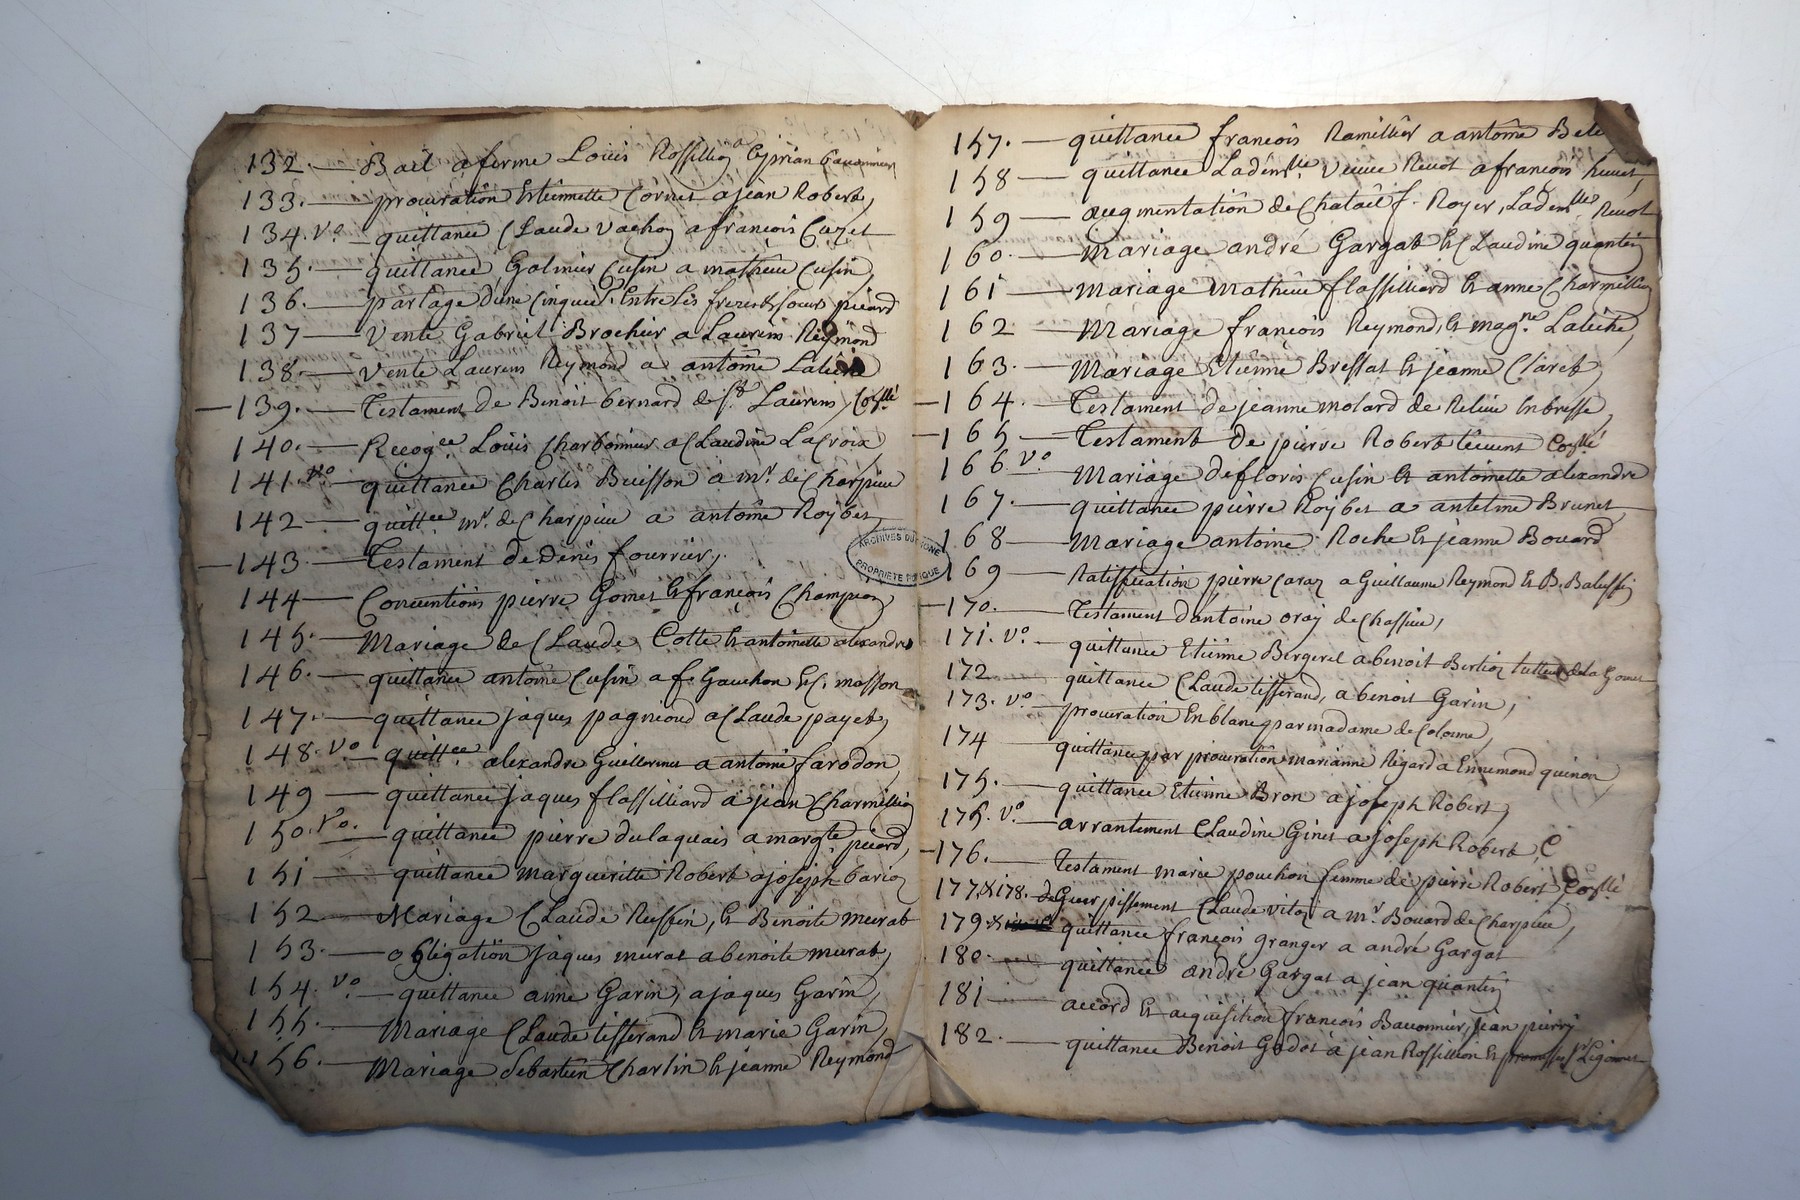 132. — Bail a ferme Louis Rossillion a Ciprian
133. — procuration Etiennette Cornet a jean Robert,
134. Vo. — quittance Claude Vachon a francois Cuzet
135. — quittance Golmier Cusin a matheue Cusin,
136. — partage d'une Cinquie. Entre les freres & soeurs picard
137 — Vente Gabriel Brochier a Laurens Reymond
138. — Vente Laurens Reymond a antoine
139. — Testament de Benoit bernard de St. Laurens,
140. — Recogce. Louis Charbonnier a Claudine La Croix
141. Vo — quittance Charles Buisson a mr. de Charpieu
142 — quittce mr. de Charpieu a antoine Roybet
143. — Testament de Denis fourrier,
144 — Conventions pierre Gomet & francois Champion
145. — Mariage de Claude Cotte & antoinette alexandre
146. — quittance antoine Cusin a f. Gauchon & C. masson
147. — quittance jaques pagneoud a Claude payet,
148. Vo — quittce. alexandre Guillermet a antoine farodon,
149 — quittance jaques flassilliard a jean Charmillion
150. Vo. — quittance pierre dulaquais a margte. picard,
151 — quittance margueritte Robert a joseph barioz
152 — Mariage Claude Ruffin, & Benoite murat
153. — obligation jaques murat a benoite murat,
154. Vo. — quittance anne Garin, a jaques Garin,
155. — Mariage Claude tisserand & marie Garin,
156. — Mariage Sebastien Charlin & jeanne Reymond
157. — quittance francois Ramillier a antoine
158 — quittance Lademlle. Veuve Revot a francois
159 — augmentation de Chatail f. Royer, Lademlle Revot
160. — Mariage andré Gargat & Claudine quantin
161 — Mariage Matheue flassilliard & anne Charmillion
162 — Mariage françois Reymond, & magne. Latiche,
163. — Mariage Etienne Bressat & jeanne Claret,
164. — Testament de jeanne molard de en bresse,
165 — Testament de pierre Robert
166 Vo. Mariage de floris Cusin & antoinette alexandre
167. — quittance pierre Roybet a antelme Brunet
168 — Mariage antoine Roche & jeanne Bouard
169 — Ratiffication pierre Caraz a Guillaume Reymond & B. Baluffin
170. — Testament d'antoine oray de Chassieu,
171. Vo. — quittance Etienne Bergeret a benoit Bertion tutteur de la Gomet
172 — quittance Claude tisserand, a benoit Garin,
173. Vo. — procuration En blanc par madame de Colome,
174 — quittance par procuration marianne Rigard a Ennemond quinon
175. — quittance Etienne Bron a joseph Robert,
175. Vo. — arrantement Claudine Ginet a joseph Robert,
176. — Testament marie pouchon femme de pierre Robert
177. & 178. deGuerpissement Claude vitoz a mr. Bouard de Charpieu,
179 quittance françois granger a andré Gargat
180. — quittance andré Gargat a jean quantin
181 — accord & acquisition francois Bauonnier, jean pierry
182. — quittance Benoit Godot a jean Rossillion &
ARCHIVES DU RHÔNE
PROPRIÉTÉ PUBLIQUE